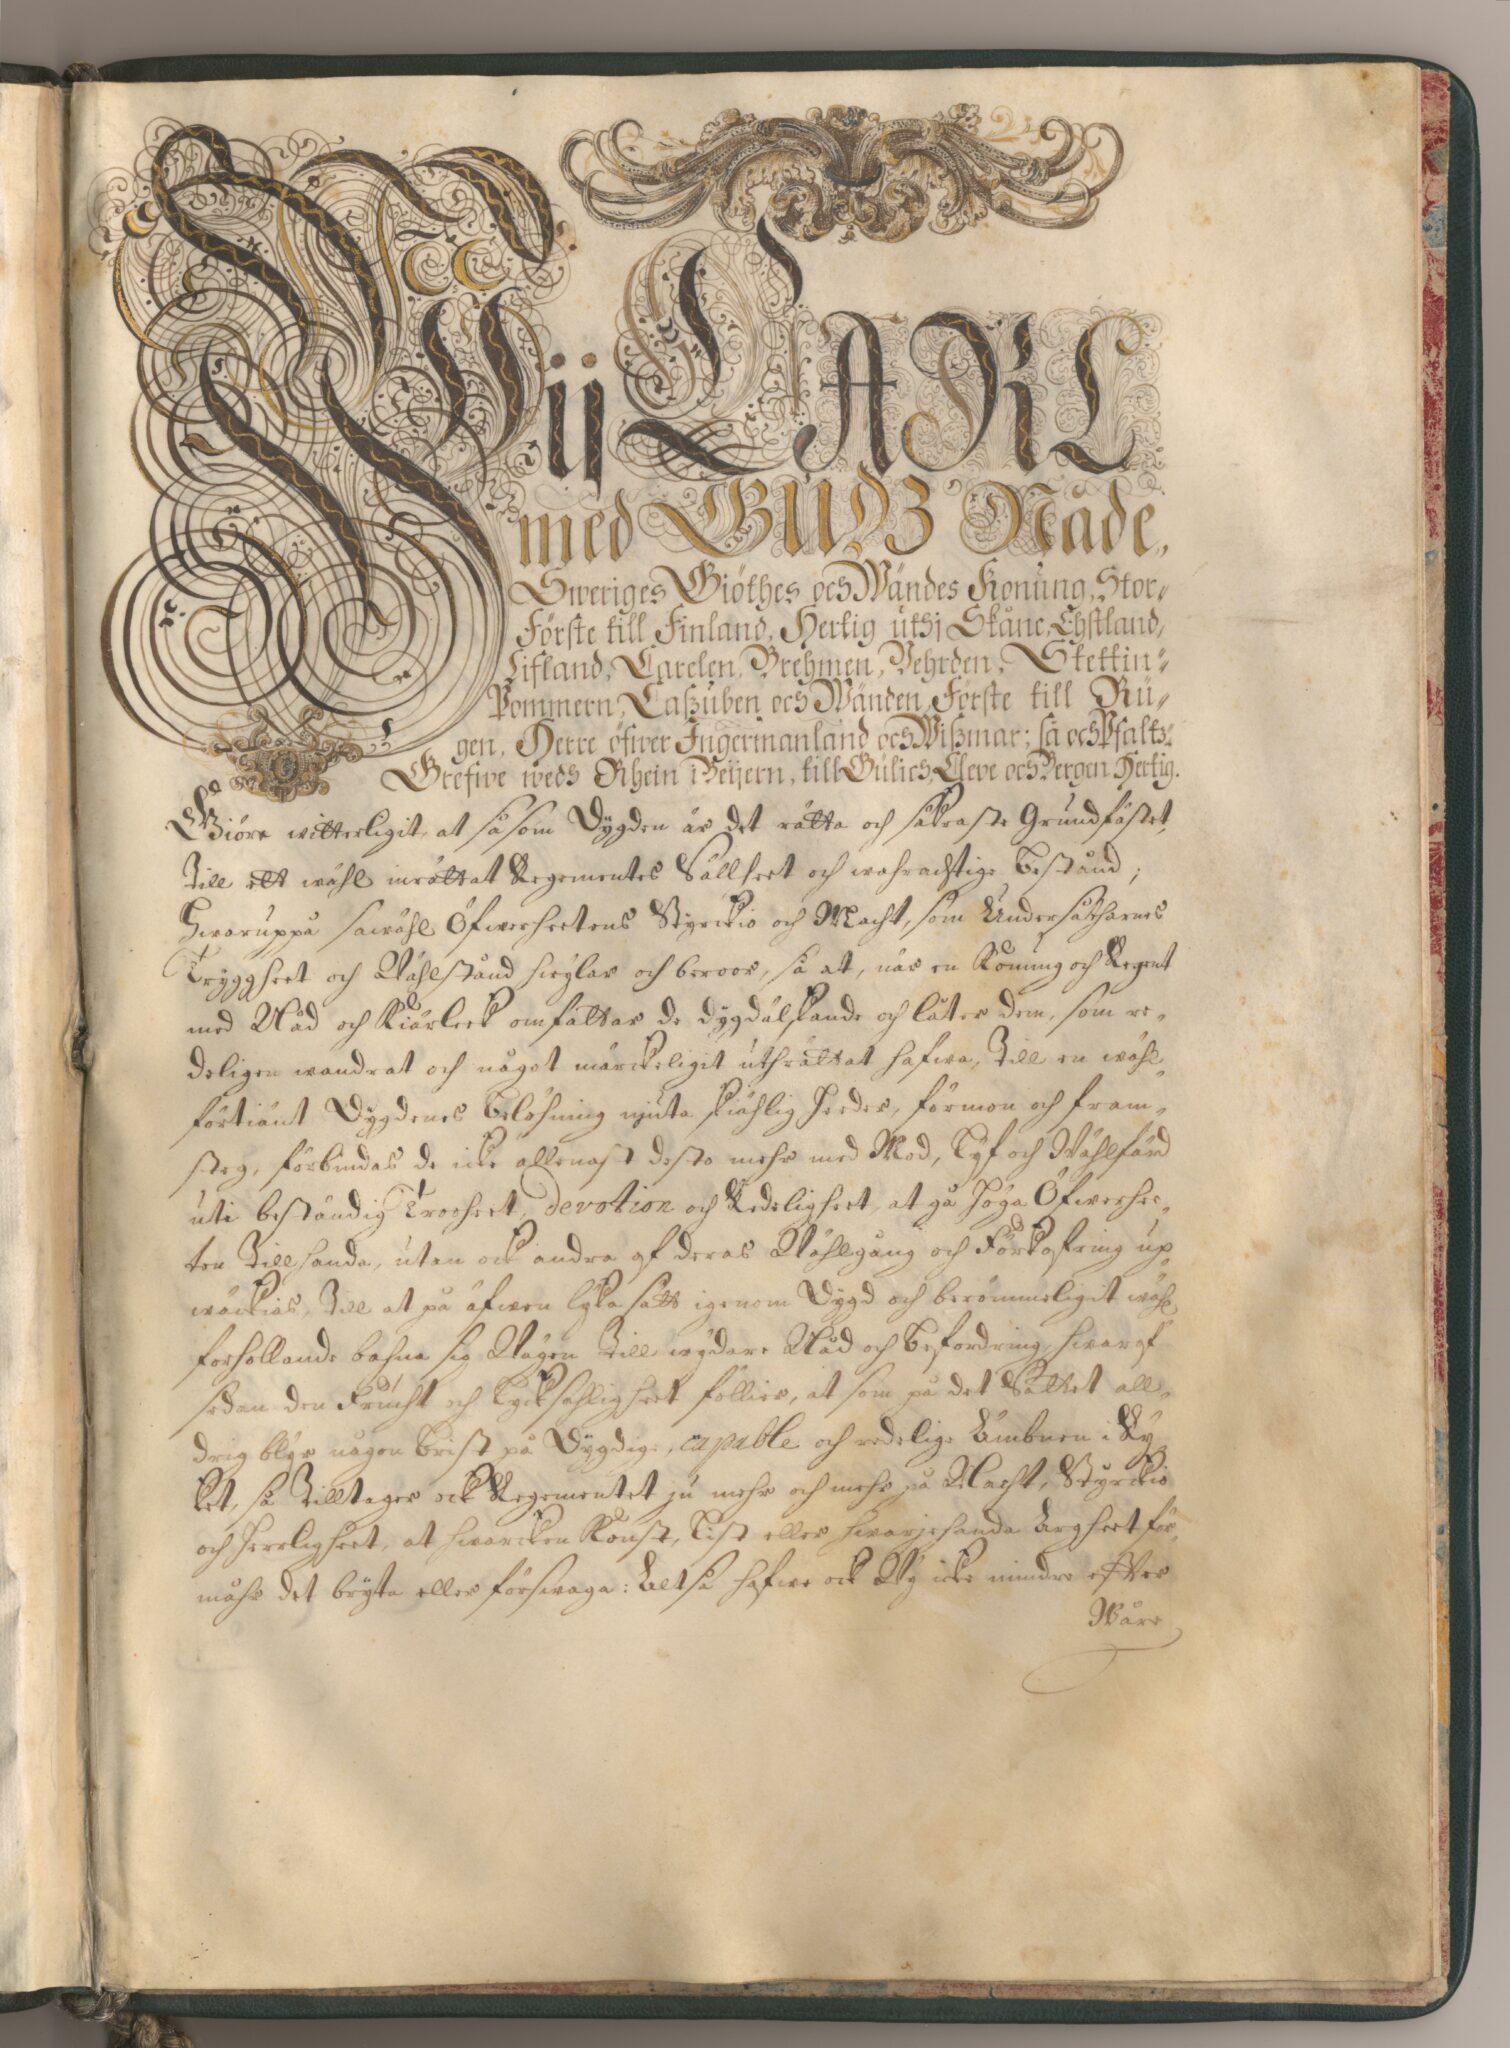 Wij CARL
med GUDZ Nåde,,
Sweriges Giöthes och Wändes Konung, Stor-
Förste till Finland, Hertig uthj Skåne, Ehstland,
Lifland, Carelen, Brehmen, Vehrden, Stettin-
Pommern, Caßuben och Wänden, Förste till Rü-
gen, Herre öfwer Ingermanland och Wißmar; så och Pfaltz-
Grefwe wedh Rhein i Beijern, till Gülich, Cleve och Bergen Hertig.
Giöre witterligit, at såsom Dygden är det rätta och säkraste Grundfästet,
Till ett wähl inrättat Regementes Sällheet och wahrachtige Bestånd;
Hwaruppå såwähl Öfwerheetens Styrckio och Macht, som Undersåtharnes
Tryggheet och Wählstånd sig lär och beroor, så at, när en Konung och Regent
med Nåd och Kiärleek omfattar de dygdälskande och låter dem, som re-
deligen wandrat och något märckeligit uthrättat hafwa, Till en wähl-
förtiänt Dygdenes Belöhning niuta skiählig Heeder, förmon och fram-
steg, förbindas de icke allenast desto mehr med Mod, Lyf och Wählfärd
uti beständig Trooheet, devotion och Redeligheet, at gå Höga Öfwerhee-
ten Till handa, utan ock andra af deras Wählgång och Förkofring up-
wäckias, Till at på äfwen lyka sätt igenom Dygd och berömmeligit wähl-
forhollande bahna sig Wägen Till wydare Nåd och Befordring, hwaraf
sedan den Frucht och Lycksahligheet föllier, at som på det Sättet all-
drig blyr någon Brist på Dygdige, capable och redelige Ämbnen i Ry-
ket, så Tilltager ock Regementet ju mehr och mehr på Macht, Styrckio
och Herrligheet, at hwarcken Konst, List eller hwarjehanda Argheet för-
måhr det bryta eller förswaga: Altså hafwe ock Wy icke mindre efter
Wåre